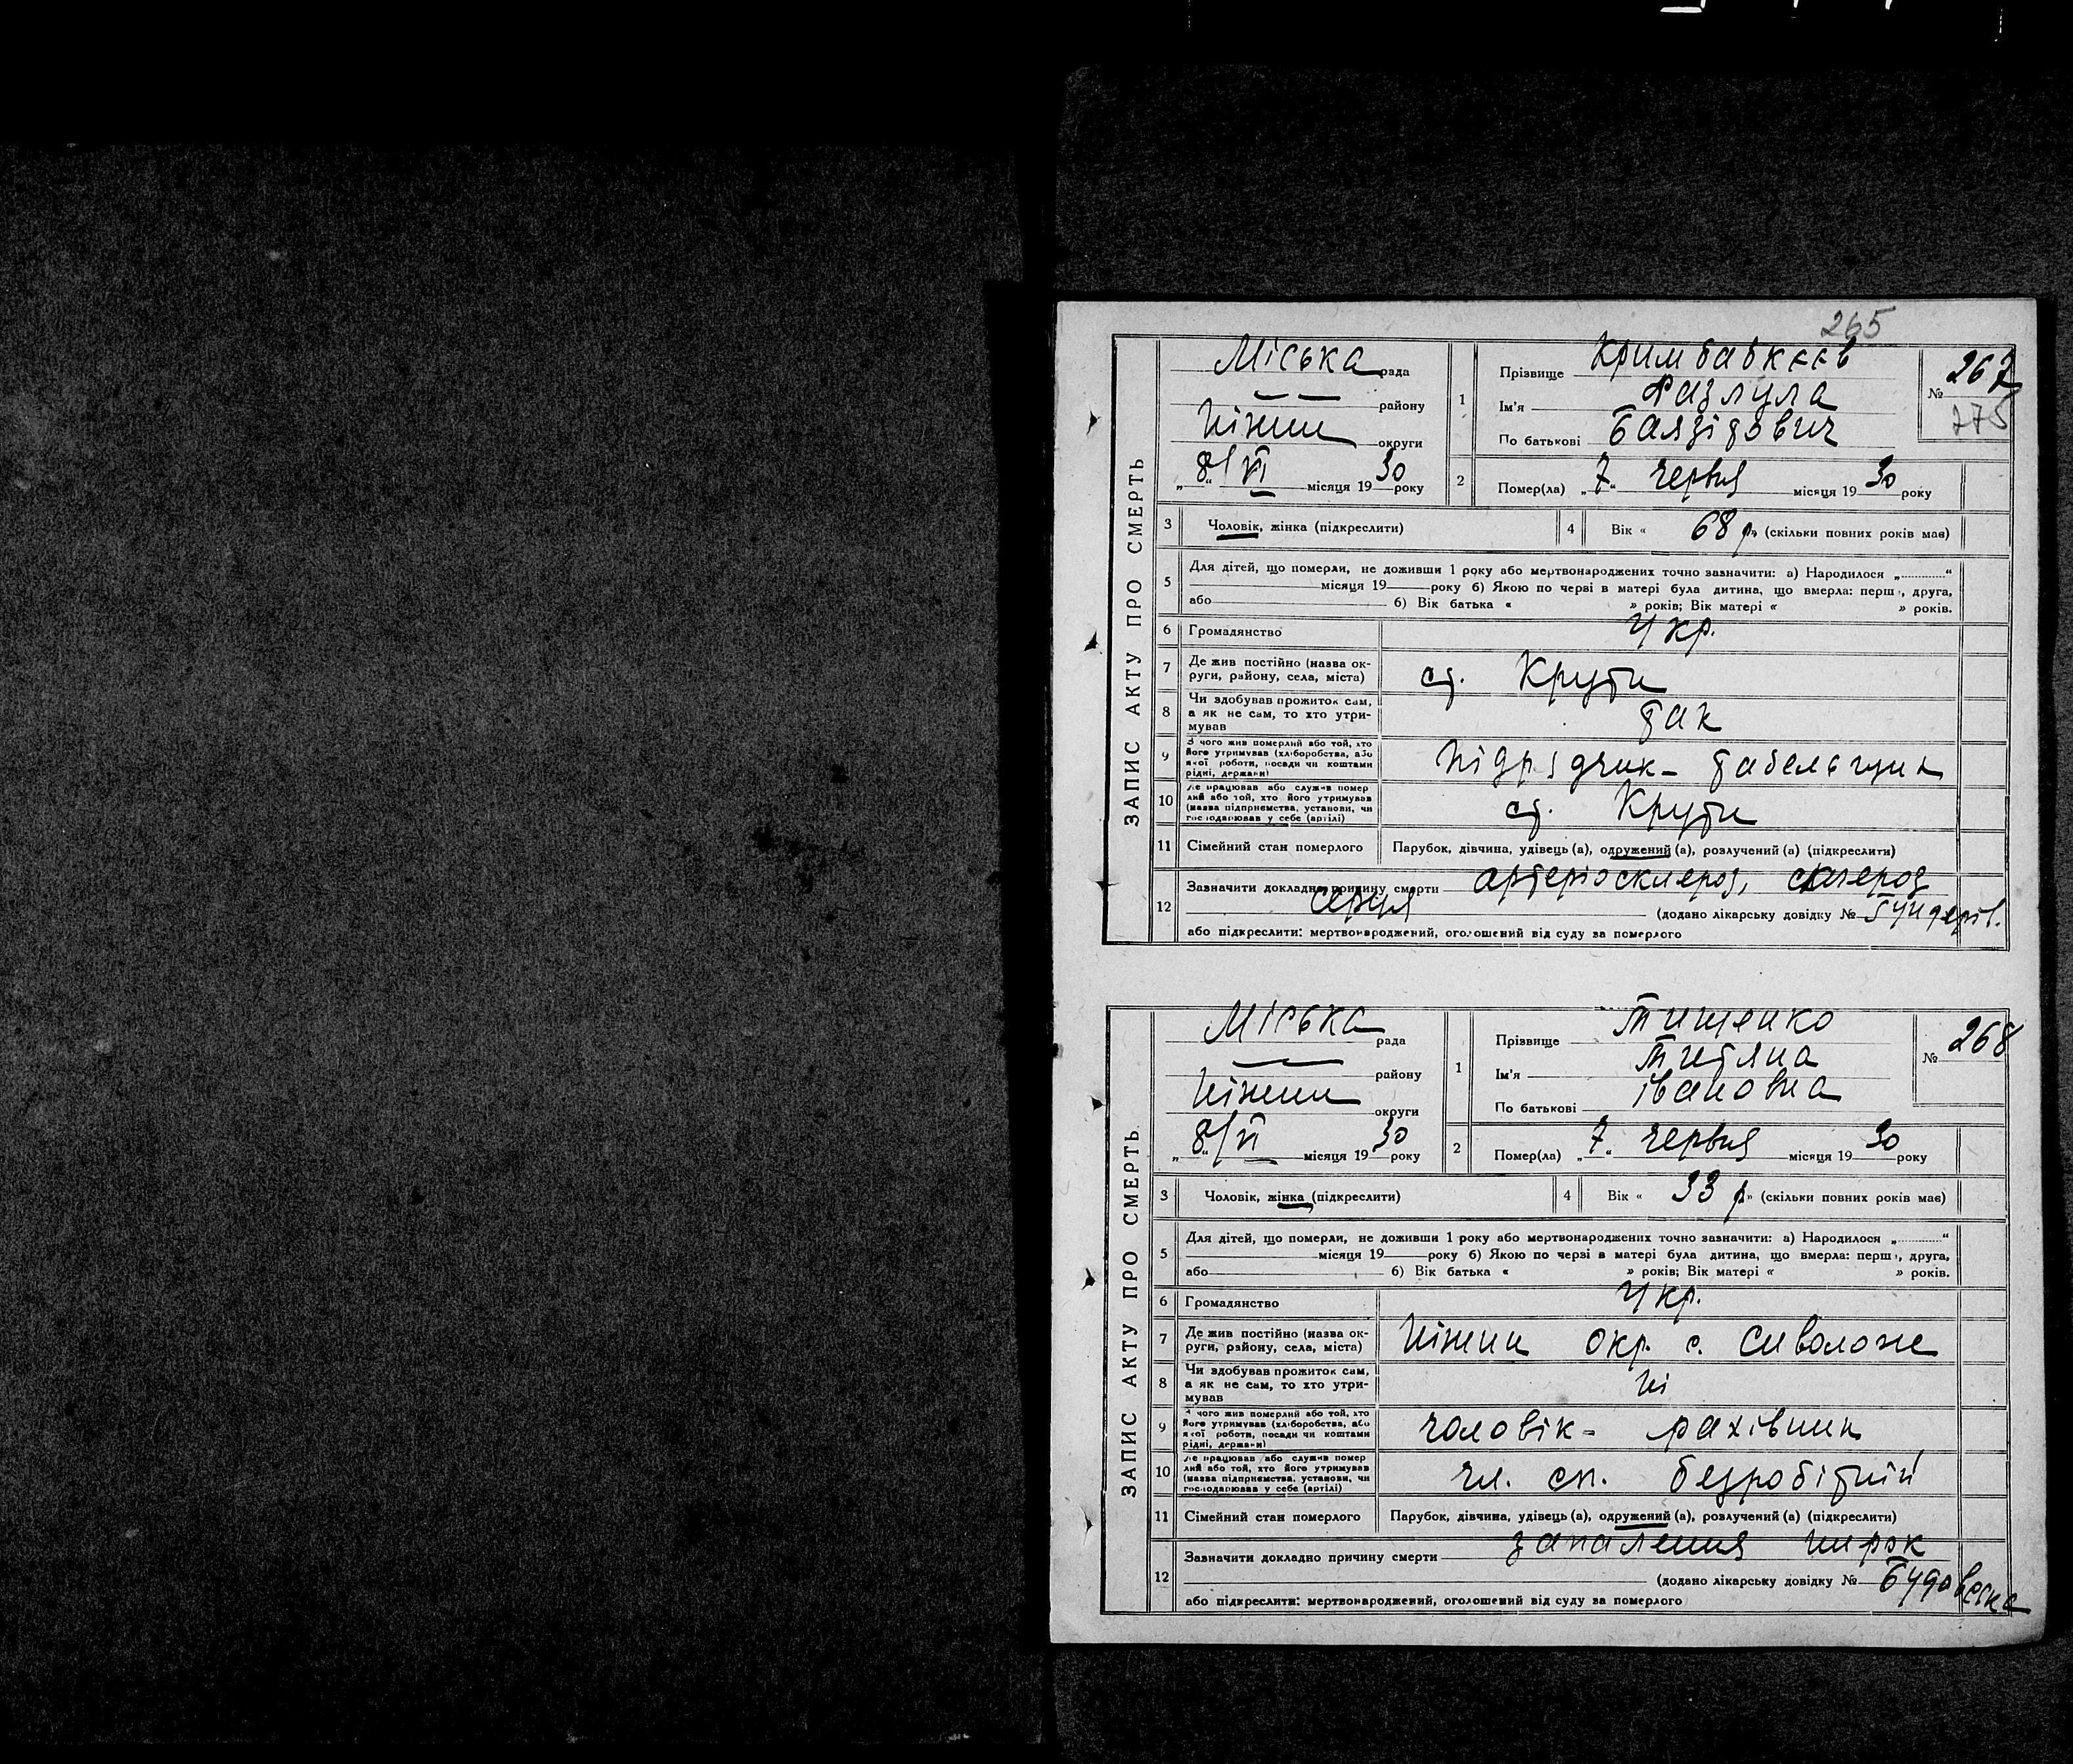 265
ЗАПИС АКТУ ПРО СМЕРТЬ
Міська рада
району
Ніжин округи
„8“ VI місяця 1930 року
1 Прізвище Кримбабкєєв
Ім'я Фазлула
По батькові Баязідович
№ 267
275
2 Помер(ла) „7“ червня місяця 1930 року
3 Чоловік, жінка (підкреслити)
4 Вік « 68 р.» (скільки повних років має)
5 Для дітей, що померли, не доживши 1 року або мертвонароджених точно зазначити: а) Народилося „............“
місяця 19 року б) Якою по черзі в матері була дитина, що вмерла: перша, друга,
або б) Вік батька « » років; Вік матері « » років.
6 Громадянство Укр.
7 Де жив постійно (назва ок-
руги, району, села, міста) ст. Крути
8 Чи здобував прожиток сам,
а як не сам, то хто утри-
мував так
9 З чого жив померлий або той, хто
його утримував (хліборобства, або
якої роботи, посади чи коштами
рідні, держави) підрядчик- табельщик
10 Де працював або служив помер
лий або той, хто його утримував
(назва підприємства, установи, чи
господарював у себе (артілі) ст. Крути
11 Сімейний стан померлого Парубок, дівчина, удівець (а), одружений (а), розлучений (а) (підкреслити)
12 Зазначити докладно причину смерти артеріосклероз, склероз
серця (додано лікарську довідку №
або підкреслити: мертвонароджений, оголошений від суду за померлого
ЗАПИС АКТУ ПРО СМЕРТЬ
Міська рада
району
Ніжин округи
„8“/VI місяця 1930 року
1 Прізвище Тищенко
Ім'я Тетяна
По батькові Івановна
№ 268
2 Помер(ла) „7“ червня місяця 1930 року
3 Чоловік, жінка (підкреслити)
4 Вік « 33 р.» (скільки повних років має)
5 Для дітей, що померли, не доживши 1 року або мертвонароджених точно зазначити: а) Народилося „............“
місяця 19 року б) Якою по черзі в матері була дитина, що вмерла: перша, друга,
або б) Вік батька « » років; Вік матері « » років.
6 Громадянство Укр.
7 Де жив постійно (назва ок-
руги, району, села, міста) Ніжин окр. с. Сиволож
8 Чи здобував прожиток сам,
а як не сам, то хто утри-
мував ні
9 З чого жив померлий або той, хто
його утримував (хліборобства, або
якої роботи, посади чи коштами
рідні, держави) чоловік- рахівник
10 Де працював або служив помер
лий або той, хто його утримував
(назва підприємства, установи, чи
господарював у себе (артілі) чл. сп. безробітній
11 Сімейний стан померлого Парубок, дівчина, удівець (а), одружений (а), розлучений (а) (підкреслити)
12 Зазначити докладно причину смерти запалення нирок
(додано лікарську довідку №
або підкреслити: мертвонароджений, оголошений від суду за померлого